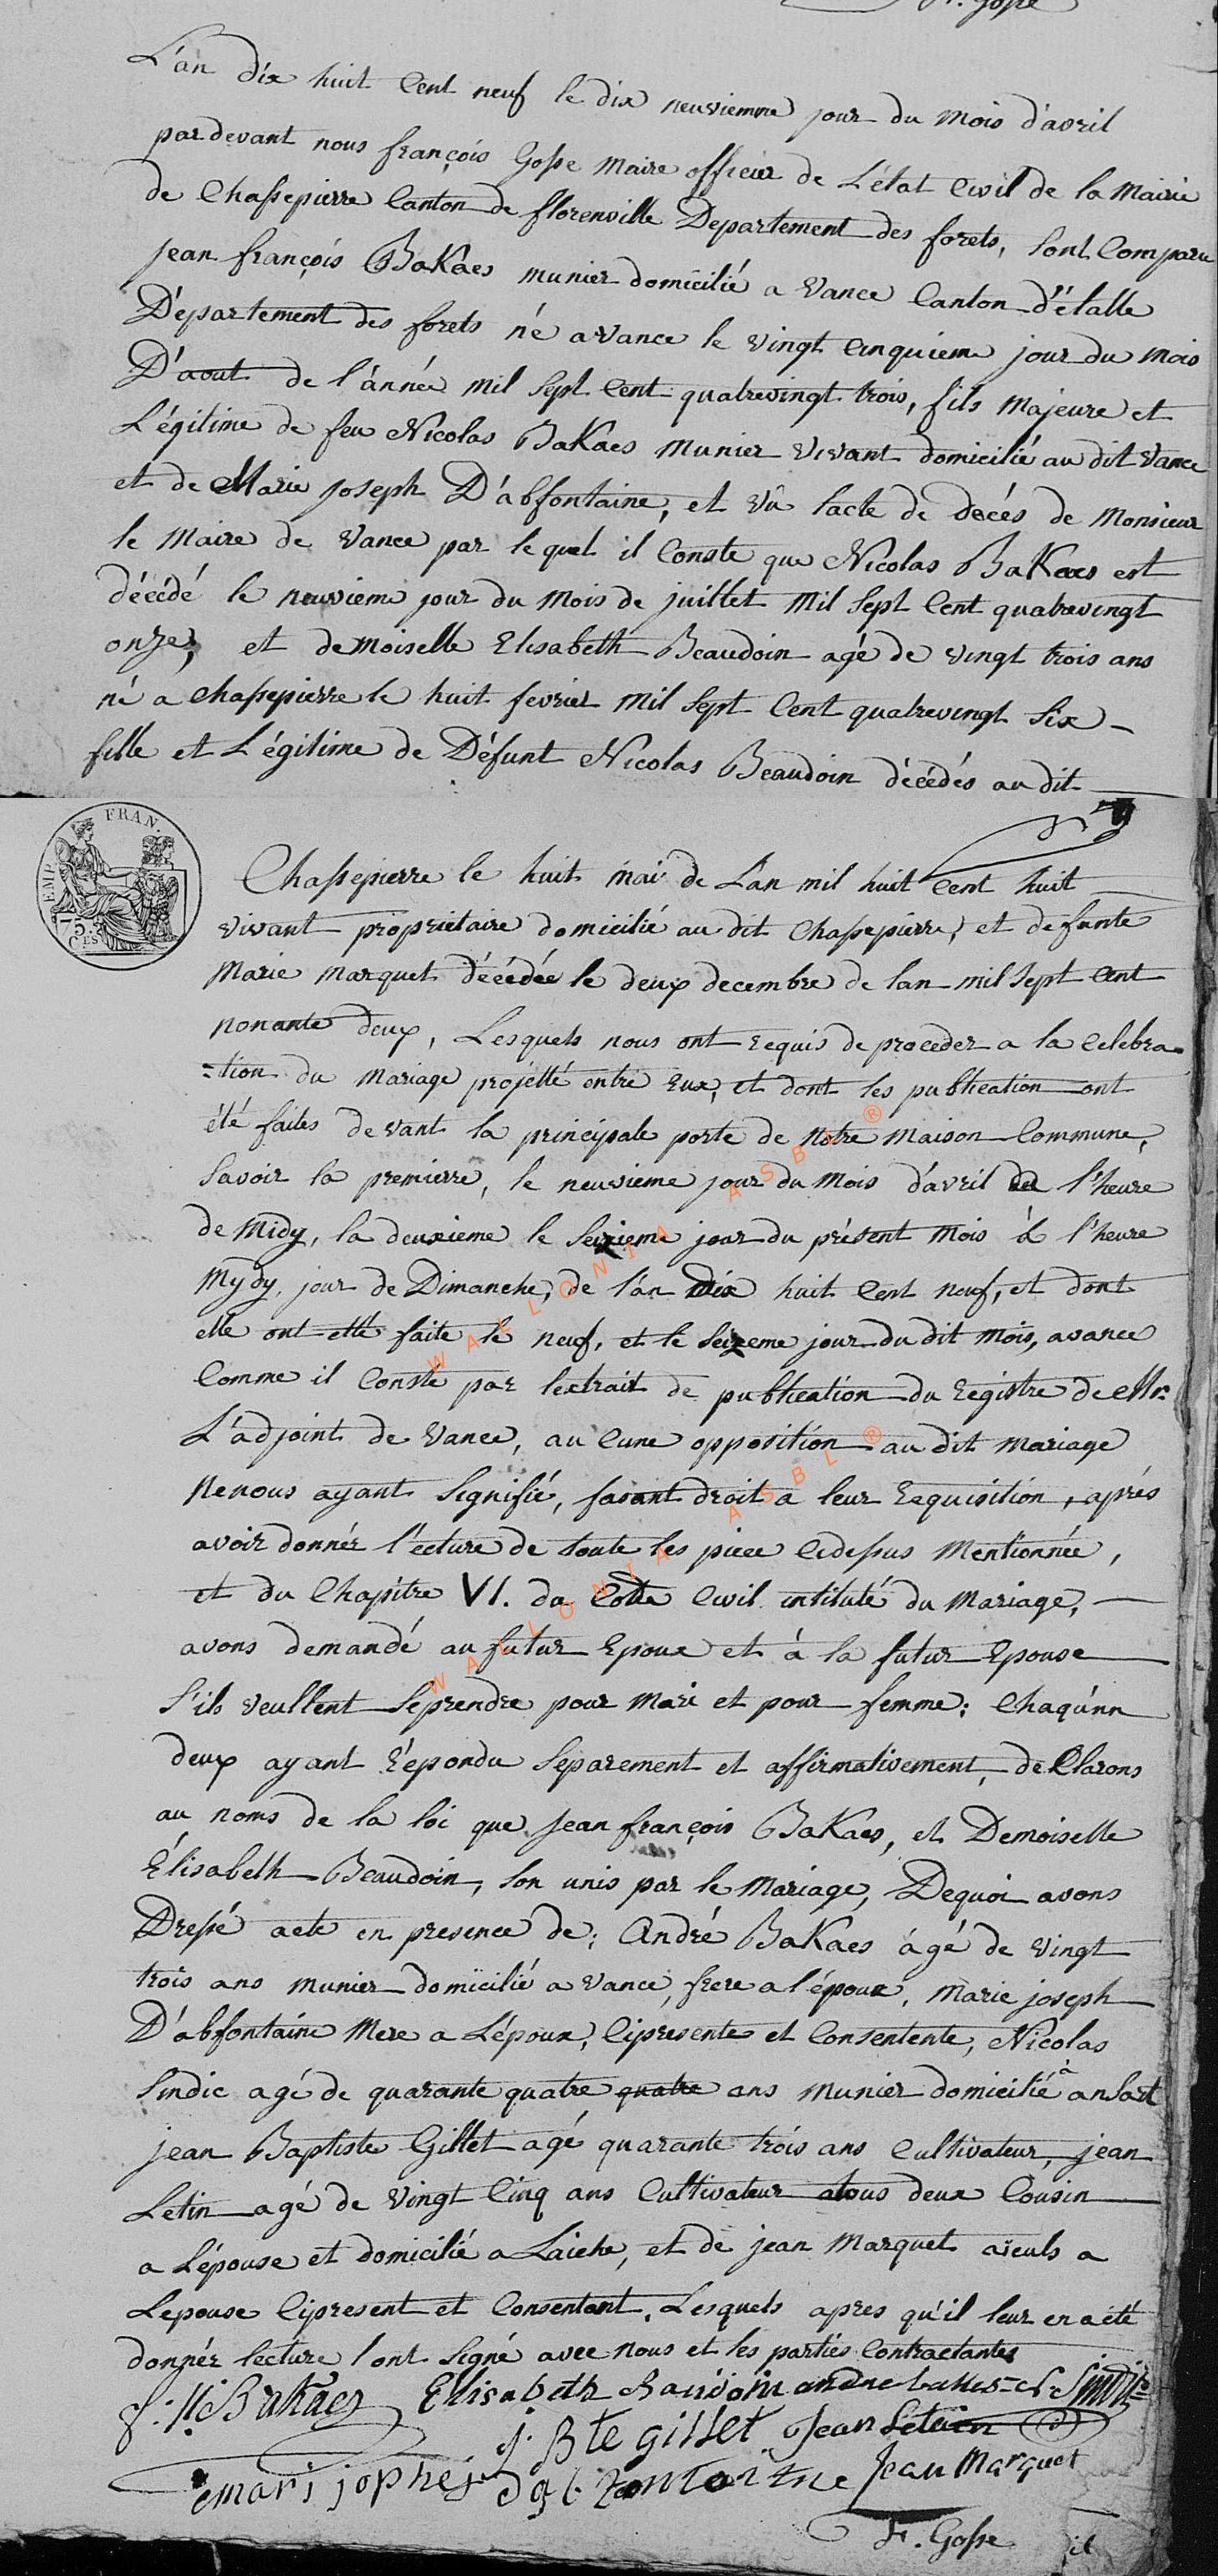 F. Gosse
L'an dix huit Cent neuf le dix neuviemme jour du mois d'avril
pardevant nous françois Gosse Maire officier de L'état Civil de la Mairie
de Chassepierre Canton de florenville Département des forets, sont Comparu
jean françois BaKaes munier domicilié a Vance Canton d'étalle
Département des forets né a vance le vingt cinquieme jour du mois
D'aout de l'année mil sept Cent quatrevingt trois, fils majeure et
Légitime de feu Nicolas BaKaes munier vivant domicilié au dit vance
et de Marie joseph D'abfontaine, et vû l'acte de decés de Monsieur
le Maire de Vance par le quel il Conste que Nicolas BaKaes est
décédé le neuvieme jour du mois de juillet mil sept Cent quatrevingt
onze, et demoiselle Elisabeth Beaudoin agé de vingt trois ans
né a chassepierre le huit fevrier mil sept Cent quatrevingt six
fille et Légitime de Défunt Nicolas Beaudoin décédés au dit
EMP. FRAN.
75. CES
Chassepierre le huit mai de L'an mil huit Cent huit
vivant propriétaire domicilié au dit Chassepierre, et defunte
Marie Marquet décédée le deux decembre de lan mil sept Cent
nonante deux, Lesquels nous ont requis de proceder a la Celebra-
=tion du Mariage projetté entre Eux, et dont les publication ont
été faites devant la principale porte de Notre Maison Commune,
Savoir la premierre, le neuvieme jour du Mois d'avril l'heure
de Midy, la deuxieme le Seizieme jour du présent mois à l'heure
Mydy, jour de Dimanche, de l'an Dix huit Cent neuf, et dont
elle ont etté faite le neuf, et le Seizeme jour du dit mois, avance
Comme il Conste par lextrait de publication du Registre de Mr.
L'adjoint de Vance, au Cune opposition au dit mariage
Nenous ayant Signifié, fasant droit a leur Requisition, aprés
avoir donnér l'écture de toute les piece Cidessus Mentionnée,
et du Chapitre VI. du Code Civil intitulé du Mariage,
avons demandé au futur Epoux et à la futur Epouse
S'ils veullent Seprendre pour Mari et pour femme: Chaqu'un
deux ayant Répondu Separement et affirmativement, deClarons
au noms de la loi que jean françois BaKaes, et Demoiselle
Elisabeth Beaudoin, Son unis par le Mariage, Dequoi avons
Dressé acte en presence de: André BaKaes agé de vingt
trois ans munier domicilié a vance, frere a l'époux, Marie joseph
D'abfontaine Mere a L'époux, Cipresente et Consentente, Nicolas
Sindic agé de quarante quatre quatre ans munier domicilié à ansart
jean Baptiste Gillet agé quarante trois ans Cultivateur, jean
Letin agé de Vingt Cinq ans Cultivateur atous deux Cousin
a L'épouse et domicilié a Laiche, et de jean Marquet aïeuls a
Lepouse Cipresent et Consentant, Lesquels apres qu'il leur en a été
donnér lecture lont Signé avec nous et les partiés Contractantes
Elisabeth Baudoin andre bakes
j. Bte gillet Jean Letain
mari jophes dabfontaine Jean Marquet
F. Gosse
WALLONIA ASBL ®
WALLONIA ASBL ®